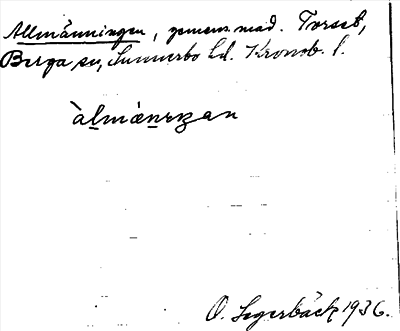 Allmänningen, gemens. mad. Torset,
Berga sn, Sunnerbo hd. Kronob. l.
àlmànıŋan
O. Segerbäck 1936.